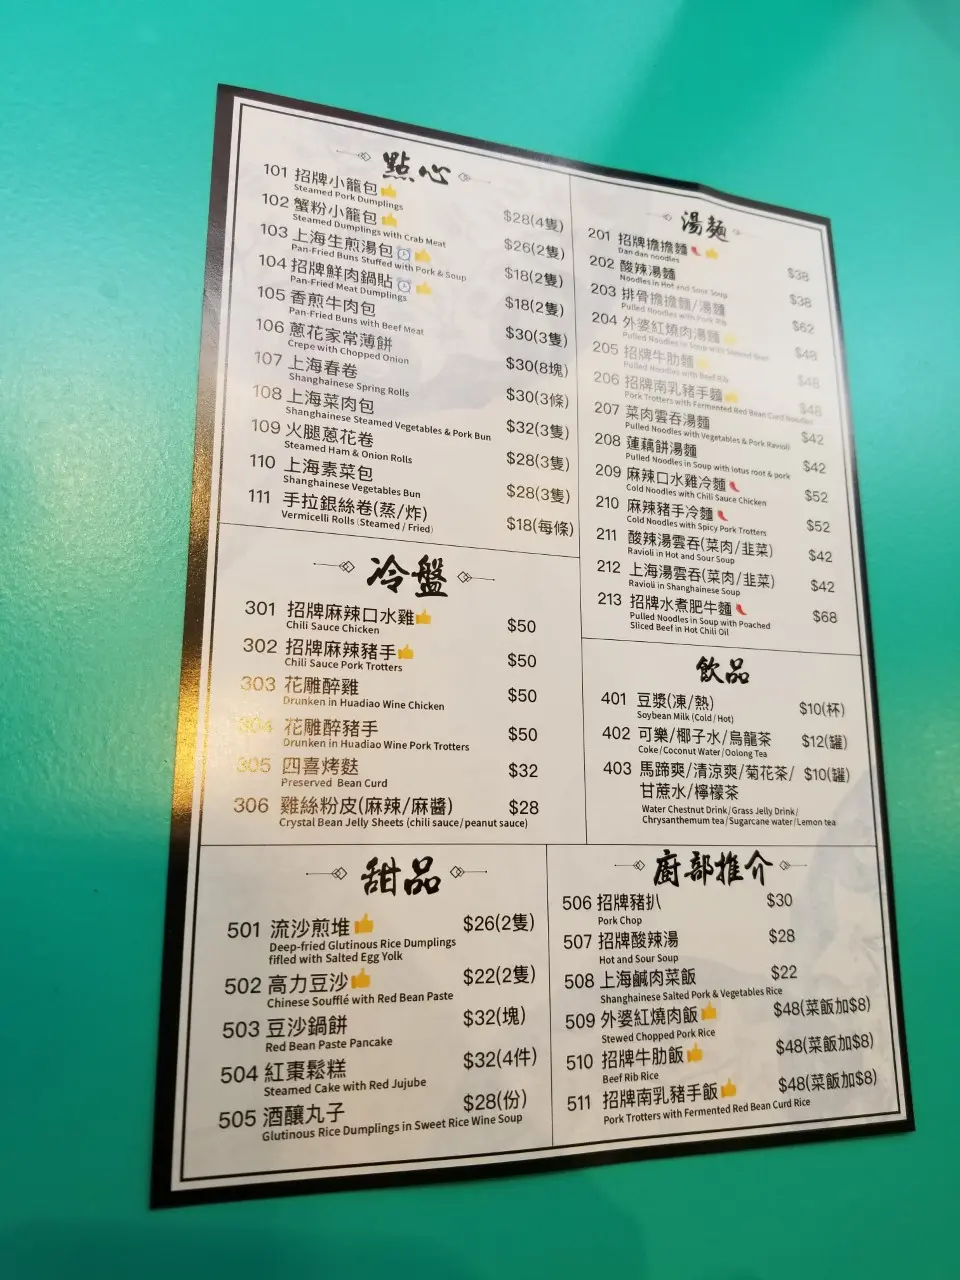 點心
101 招牌小籠包
Steamed Pork Dumplings
$28(4隻)
102 蟹粉小籠包
Steamed Dumplings with Crab Meat
$26(2隻)
103 上海生煎湯包
Pan-Fried Buns Stuffed with Pork & Soup
$18(2隻)
104 招牌鮮肉鍋貼
Pan-Fried Meat Dumplings
$18(2隻)
105 香煎牛肉包
Pan-Fried Buns with Beef Meat
$30(3隻)
106 蔥花家常薄餅
Crepe with Chopped Onion
$30(8塊)
107 上海春卷
Shanghainese Spring Rolls
$30(3條)
108 上海菜肉包
Shanghainese Steamed Vegetables & Pork Bun
$32(3隻)
109 火腿蔥花卷
Steamed Ham & Onion Rolls
$28(3隻)
110 上海素菜包
Shanghainese Vegetables Bun
$28(3隻)
111 手拉銀絲卷(蒸/炸)
Vermicelli Rolls (Steamed / Fried)
$18(每條)
湯麵
201 招牌擔擔麵
Dan dan noodles
$38
202 酸辣湯麵
Noodles in Hot and Sour Soup
$38
203 排骨擔擔麵/湯麵
Pulled Noodles with Pork Rib
$62
204 外婆紅燒肉湯麵
Pulled Noodles in Soup with Stewed
$48
205 招牌牛肋麵
Pulled Noodles with Beef Rib
$48
206 招牌南乳豬手麵
Pork Trotters with Fermented Red Bean Curd Noodles
$48
207 菜肉雲吞湯麵
Pulled Noodles with Vegetables & Pork Ravioli
$42
208 蓮藕餅湯麵
Pulled Noodles in Soup with lotus root & pork
$42
209 麻辣口水雞冷麵
Cold Noodles with Chili Sauce Chicken
$52
210 麻辣豬手冷麵
Cold Noodles with Spicy Pork Trotters
$52
211 酸辣湯雲吞(菜肉/韭菜)
Ravioli in Hot and Sour Soup
$42
212 上海湯雲吞(菜肉/韭菜)
Ravioli in Shanghainese Soup
$42
213 招牌水煮肥牛麵
Pulled Noodles in Soup with Poached
Sliced Beef in Hot Chili Oil
$68
冷盤
301 招牌麻辣口水雞
Chili Sauce Chicken
$50
302 招牌麻辣豬手
Chili Sauce Pork Trotters
$50
303 花雕醉雞
Drunken in Huadiao Wine Chicken
$50
304 花雕醉豬手
Drunken in Huadiao Wine Pork Trotters
$50
305 四喜烤麩
Preserved Bean Curd
$32
306 雞絲粉皮(麻辣/麻醬)
Crystal Bean Jelly Sheets (chili sauce/peanut sauce)
$28
飲品
401 豆漿(凍/熱)
Soybean Milk (Cold / Hot)
$10(杯)
402 可樂/椰子水/烏龍茶
Coke/Coconut Water/Oolong Tea
$12(罐)
403 馬蹄爽/清涼爽/菊花茶/
甘蔗水/檸檬茶
$10(罐)
Water Chestnut Drink/Grass Jelly Drink/
Chrysanthemum tea/Sugarcane water/Lemon tea
甜品
501 流沙煎堆
Deep-fried Glutinous Rice Dumplings
fifled with Salted Egg Yolk
$26(2隻)
502 高力豆沙
Chinese Soufflé with Red Bean Paste
$22(2隻)
503 豆沙鍋餅
Red Bean Paste Pancake
$32(塊)
504 紅棗鬆糕
Steamed Cake with Red Jujube
$32(4件)
505 酒釀丸子
Glutinous Rice Dumplings in Sweet Rice Wine Soup
$28(份)
廚部推介
506 招牌豬扒
Pork Chop
$30
507 招牌酸辣湯
Hot and Sour Soup
$28
508 上海鹹肉菜飯
Shanghainese Salted Pork & Vegetables Rice
$22
509 外婆紅燒肉飯
Stewed Chopped Pork Rice
$48(菜飯加$8)
510 招牌牛肋飯
Beef Rib Rice
$48(菜飯加$8)
511 招牌南乳豬手飯
Pork Trotters with Fermented Red Bean Curd Rice
$48(菜飯加$8)